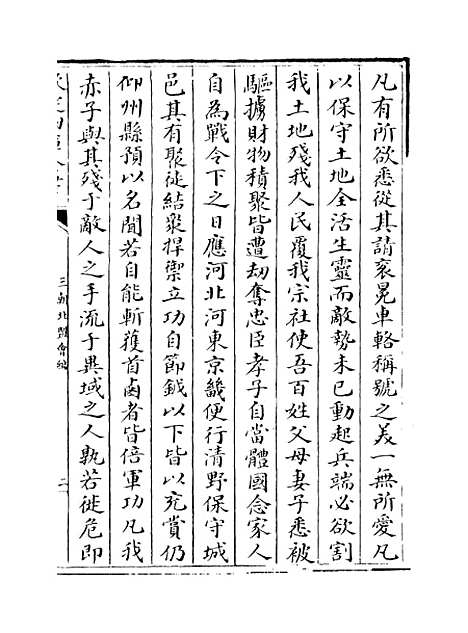 凡有所欲悉從其請衮冕車輅稱號之美一無所愛凡
以保守土地全活生靈而敵勢未已動起兵端必欲割
我土地殘我人民覆我宗社使吾百姓父母妻子悉被
驅擄財物積聚皆遭刼奪忠臣孝子自當體國念家人
自為戰令下之日應河北河東京畿便行清野保守城
邑其有聚徒結衆捍禦立功自節鉞以下皆以充賞仍
仰州縣預以名聞若自能斬獲首鹵者皆倍軍功凡我
赤子與其殘于敵人之手流于異域之人孰若徙危即
三朝北盟會編
二